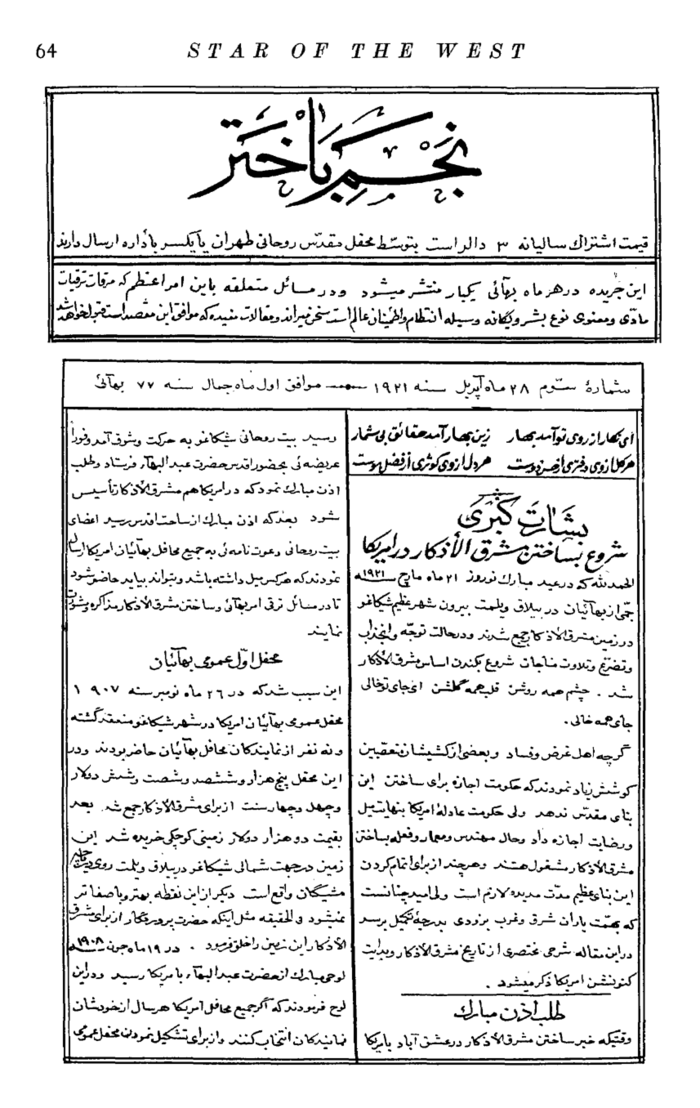 64 STAR OF THE WEST
نجم باختر
قیمت اشتراک سالیانه ۳ دالر است بتوسّط محفل مقدّس روحانی طهران یا یکسر باداره ارسال دارند
این جریده در هر ماه بهائی یکبار منتشر میشود و در مسائل متعلقه باین امر اعظم که مرقات ترقیات
مادّی و معنوی نوع بشر و یگانه وسیله انتظام و اطمینان عالم است سخن میراند و مقالات مفیده که موافق این مقصد است قبول خواهد شد
شمارهٔ ستوم ۲۸ ماه آپریل سنه ۱۹۲۱ موافق اول ماه جمال سنه ۷۷ بهائی
ای بهار از روی تو آمد بهار زین بهار آمد حقائق بی شمار
هر گل از وی دفتری از حسن دوست هر دل از وی کوثری از فضل اوست
بشارت کبری
شروع بساختن مشرق الأذکار در امریکا
الحمد لله که در عید مبارک نوروز ۲۱ ماه مارچ سنه ۱۹۲۱
جمّی از بهائیان در ییلاق ویلمت بیرون شهر عظیم شکاغو
در زمین مشرق الاذکار جمع شدند و در حالت توجّه و انجذاب
و تضرّع و تلاوت مناجات شروع بکندن اساس مشرق الأذکار
شد . چشم همه روشن قلب همه گلشن ای جای تو خالی
جای همه خالی .
گرچه اهل غرض و فساد و بعضی از کشیشان متعصّبین
کوشش زیاد نمودند که حکومت اجازه برای ساختن این
بنای مقدّس ندهد ولی حکومت عادلهٔ امریکا بنهایت میل
و رضایت اجازه داد و حال مهندس و معمار و فعله بساختن
مشرق الأذکار مشغول هستند و هر چند از برای اتمام کردن
این بنای عظیم مدّت مدیده لازم است ولی امید چنانست
که بهمّت یاران شرق و غرب بزودی بدرجهٔ تکمیل برسد
در این مقاله شرحی مختصری از تاریخ مشرق الأذکار و بدایت
کنونشن امریکا ذکر میشود .
طلب اذن مبارک
وقتیکه خبر ساختن مشرق الاذکار در عشق آباد بامریکا
رسید بیت روحانی شیکاغو به حرکت و شوق آمد و فوراً
عریضه ئی بحضور اقدس حضرت عبد البهآء فرستاد و طلب
اذن مبارک نمود که در امریکا هم مشرق الأذکار تأسیس
شود بعد که اذن مبارک از ساحت اقدس رسید اعضای
بیت روحانی دعوت نامه ئی به جمیع محافل بهائیان امریکا ارسال
نمودند که هر کس میل داشته باشد و بتواند بیاید حاضر شود
تا در مسائل ترقی امر بهائی و ساختن مشرق الأذکار مذاکره و شورت
نمایند
محفل اوّل عمومی بهائیان
این سبب شد که در ۲۶ ماه نومبر سنه ۱۹۰۷
محفل عمومی بهائیان امریکا در شهر شیکاغو منعقد گشته
و نه نفر از نمایندکان محافل بهائیان حاضر بودند و در
این محفل پنج هزار و ششصد و شصت و شش دولار
و چهل و چهار سنت از برای مشرق الأذکار جمع شد بعد
بقیمت دو هزار دولار زمینی کوچکی خریده شد این
زمین در جهت شمالی شیکاغو در ییلاق ویلمت روی دریاچهٔ
مشیگان واقع است دیگر از این نقطه بهتر و باصفا تر
نمیشود و الحقیقه مثل اینکه حضرت پروردگار از برای مشرق
الأذکار این زمین را خلق فرمود . در ۱۹ ماه جون سنه ۱۹۰۸
لوحی مبارک از حضرت عبد البهآء بامریکا رسید و در این
لوح فرمودند که اگر جمیع محافل امریکا هر سال از خودشان
نمایندکان انتخاب کنند و از برای تشکیل نمودن محفل عمومی